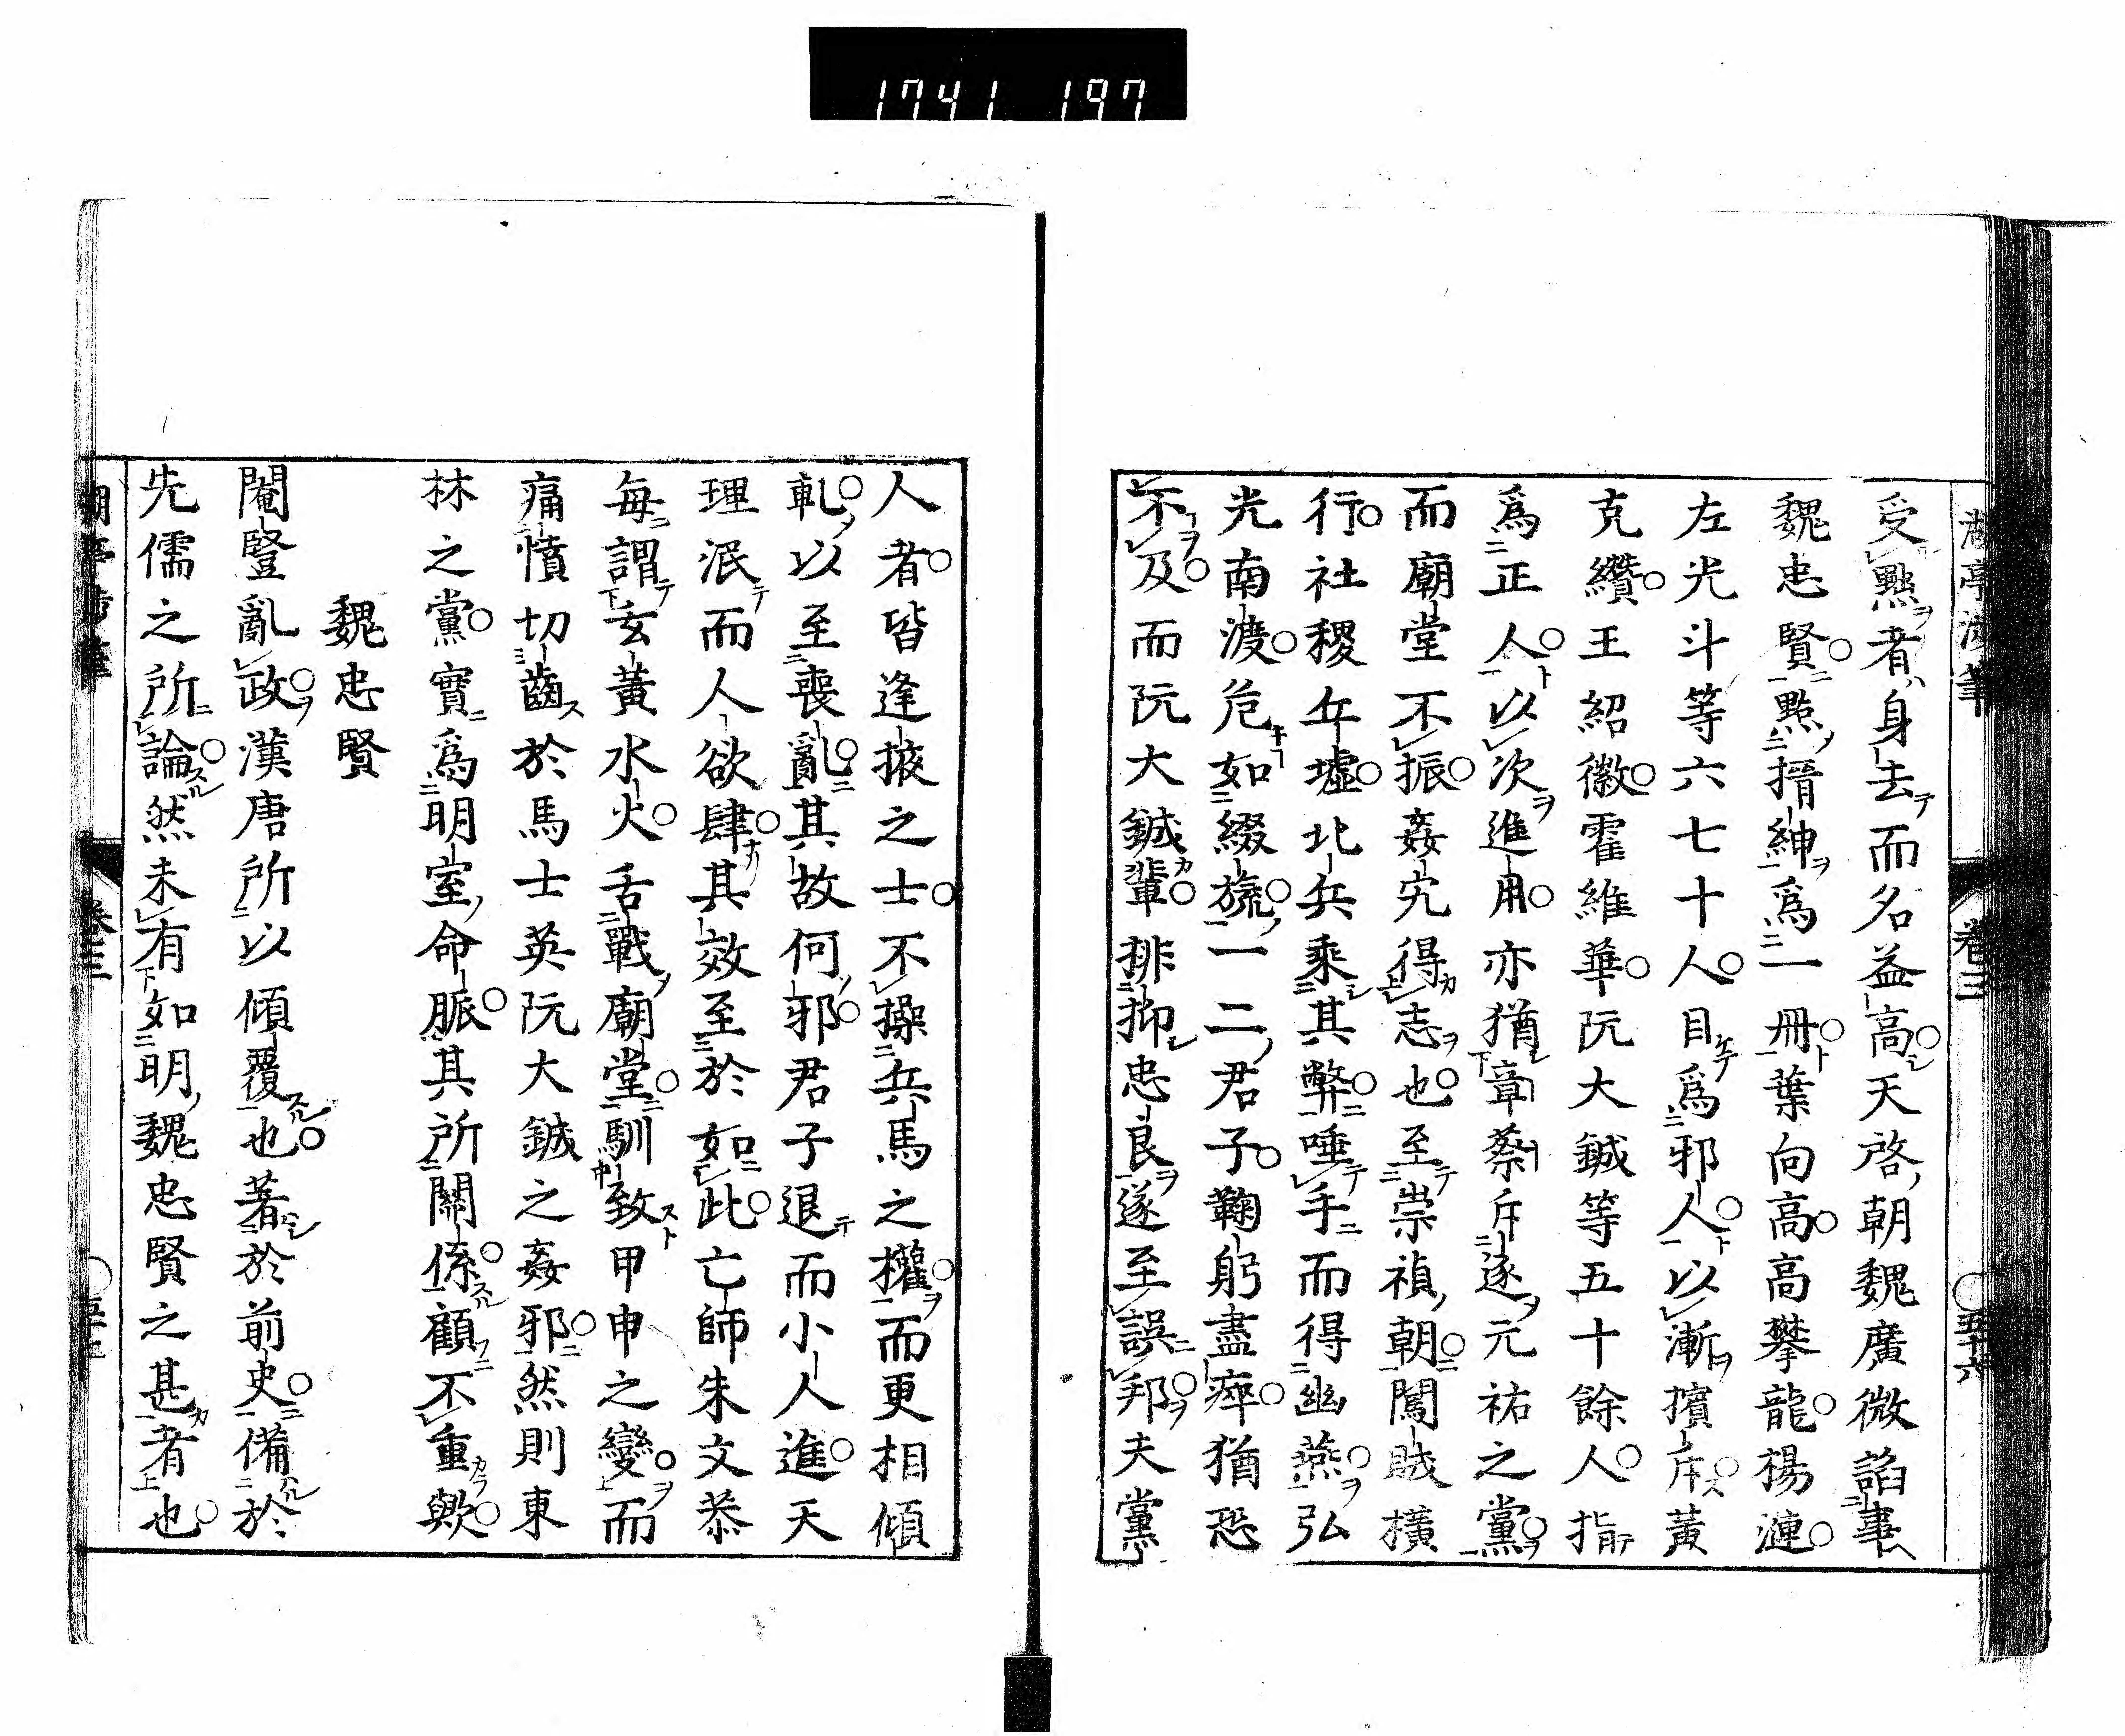 1741 197
受點者身去而名益高天啓朝魏廣微諂事
魏忠賢點搢紳爲一冊葉向高高攀龍楊漣
左光斗等六七十人目爲邪人以漸擯斥黃
克纘王紹徽霍維華阮大鋮等五十餘人指
爲正人以次進用亦猶章蔡斥逐元祐之黨
而廟堂不振姦宄得志也至崇禎朝闖賊橫
行社稷丘墟北兵乘其弊唾手而得幽燕弘
光南渡危如綴旒一二君子鞠躬盡瘁猶恐
不及而阮大鋮輩排抑忠良遂至誤邦夫黨
人者皆逢掖之士不操兵馬之權而更相傾
軋以至喪亂其故何邪君子退而小人進天
理泯而人欲肆其效至於如此亡師朱文恭
每謂玄黃水火舌戰廟堂馴致甲申之變而
痛憤切齒於馬士英阮大鋮之姦邪然則東
林之黨實爲明室命脈其所關係顧不重歟
魏忠賢
閹豎亂政漢唐所以傾覆也著於前史備於
先儒之所論然未有如明魏忠賢之甚者也
卷三
五十六